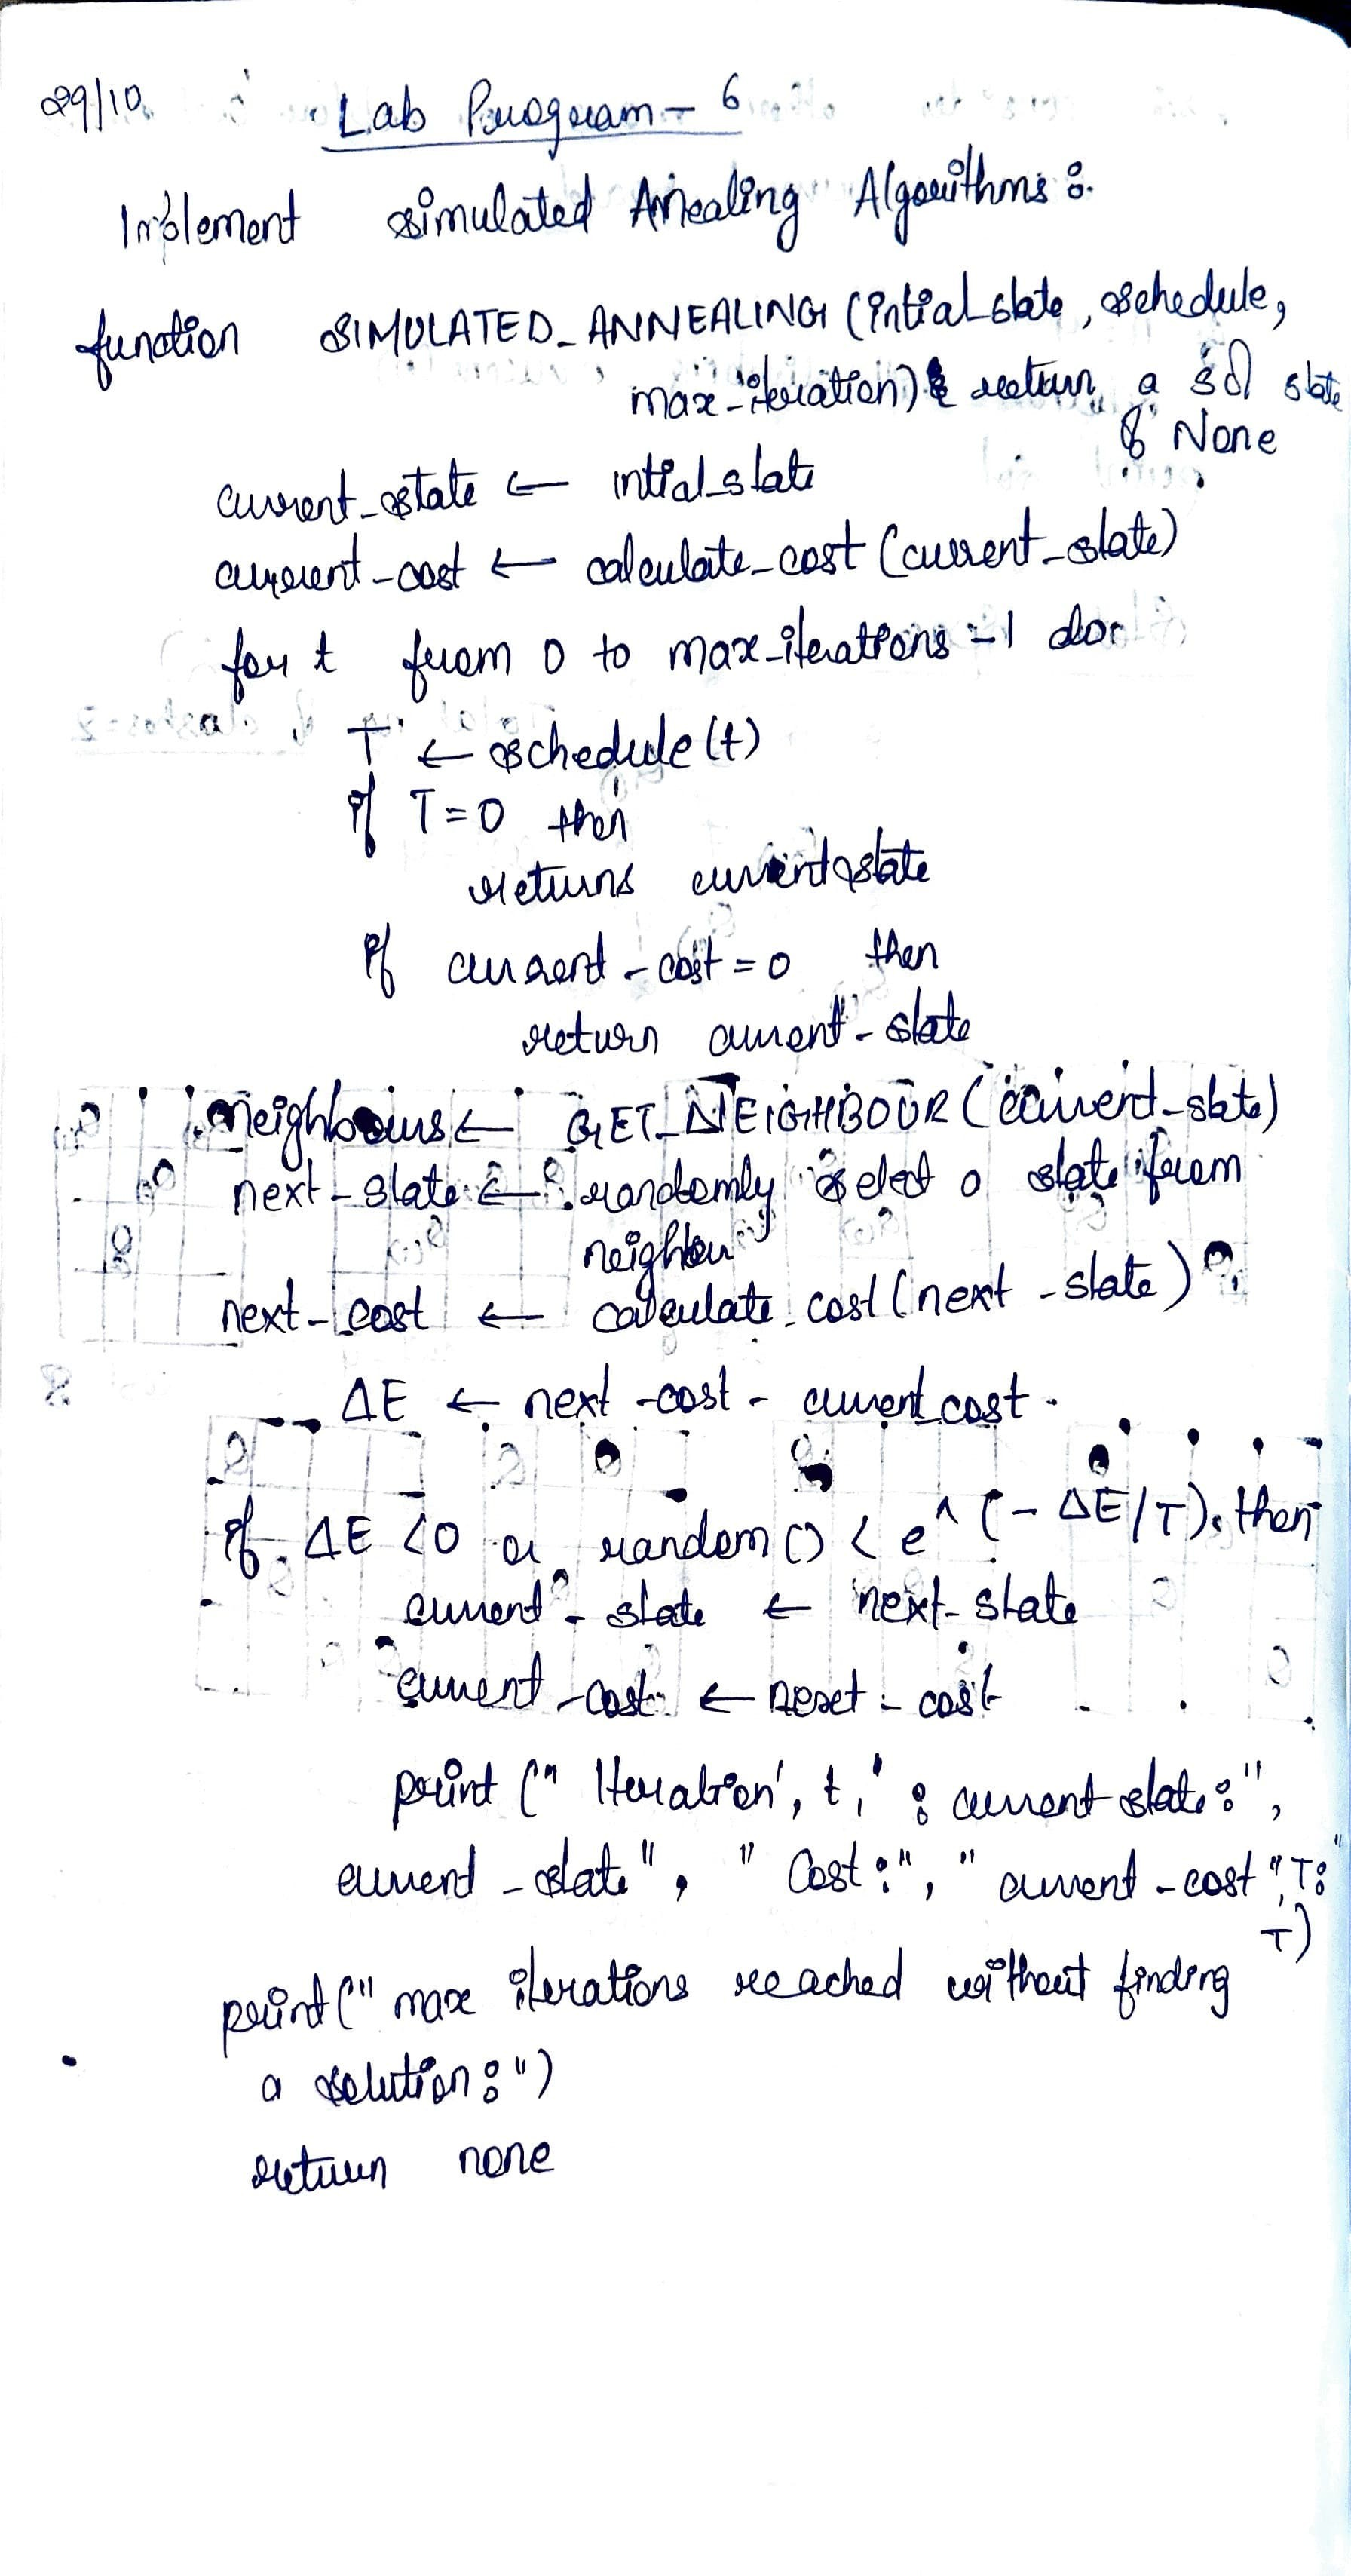 29/10
Lab Program - 6
Implement simulated Annealing Algorithms :-
function SIMULATED_ANNEALING (intial_state, schedule,
max-iteration) return a sol state
or None
current_state ← intial_state
current-cost ← calculate_cost (current_state)
for t from 0 to max-iterations -1 do
T ← schedule (t)
if T=0 then
returns current state
if current-cost = 0 then
return current-state
neighbours ← GET_NEIGHBOUR (current-state)
next-state ← randomly select a state from
neighbour
next-cost ← calculate cost (next-state)
ΔE ← next-cost - current_cost
if ΔE < 0 or random () < e^ (- ΔE/T) then
current-state ← next-state
current-cost ← next-cost
print (" Iteration', t, ' : current state :",
current-state", " Cost :", " current-cost "T:"
T)
print (" max iterations reached without finding
a solution : ")
return none